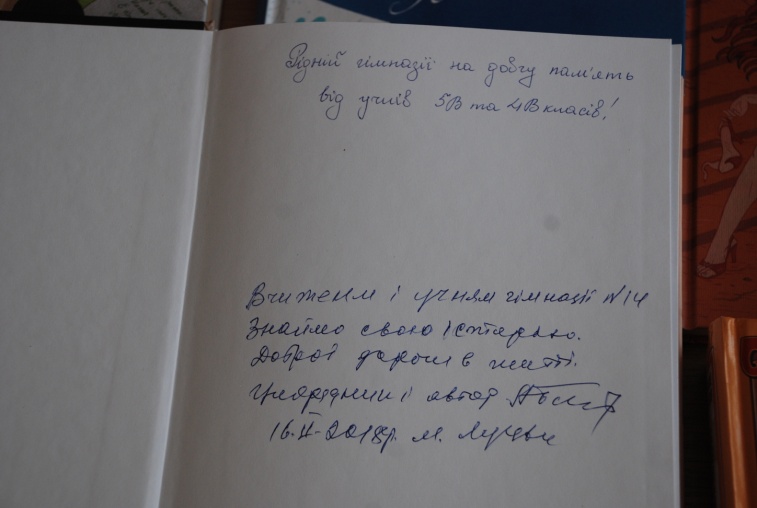 Рідній гімназії на довгу пам'ять
від учнів 5В та 4В класів!
Вчителям і учням гімназії №14
Знаймо свою історію.
Доброї дороги в житті.
Упорядник і автор
16.ІІ-2018р. м. Луцьк